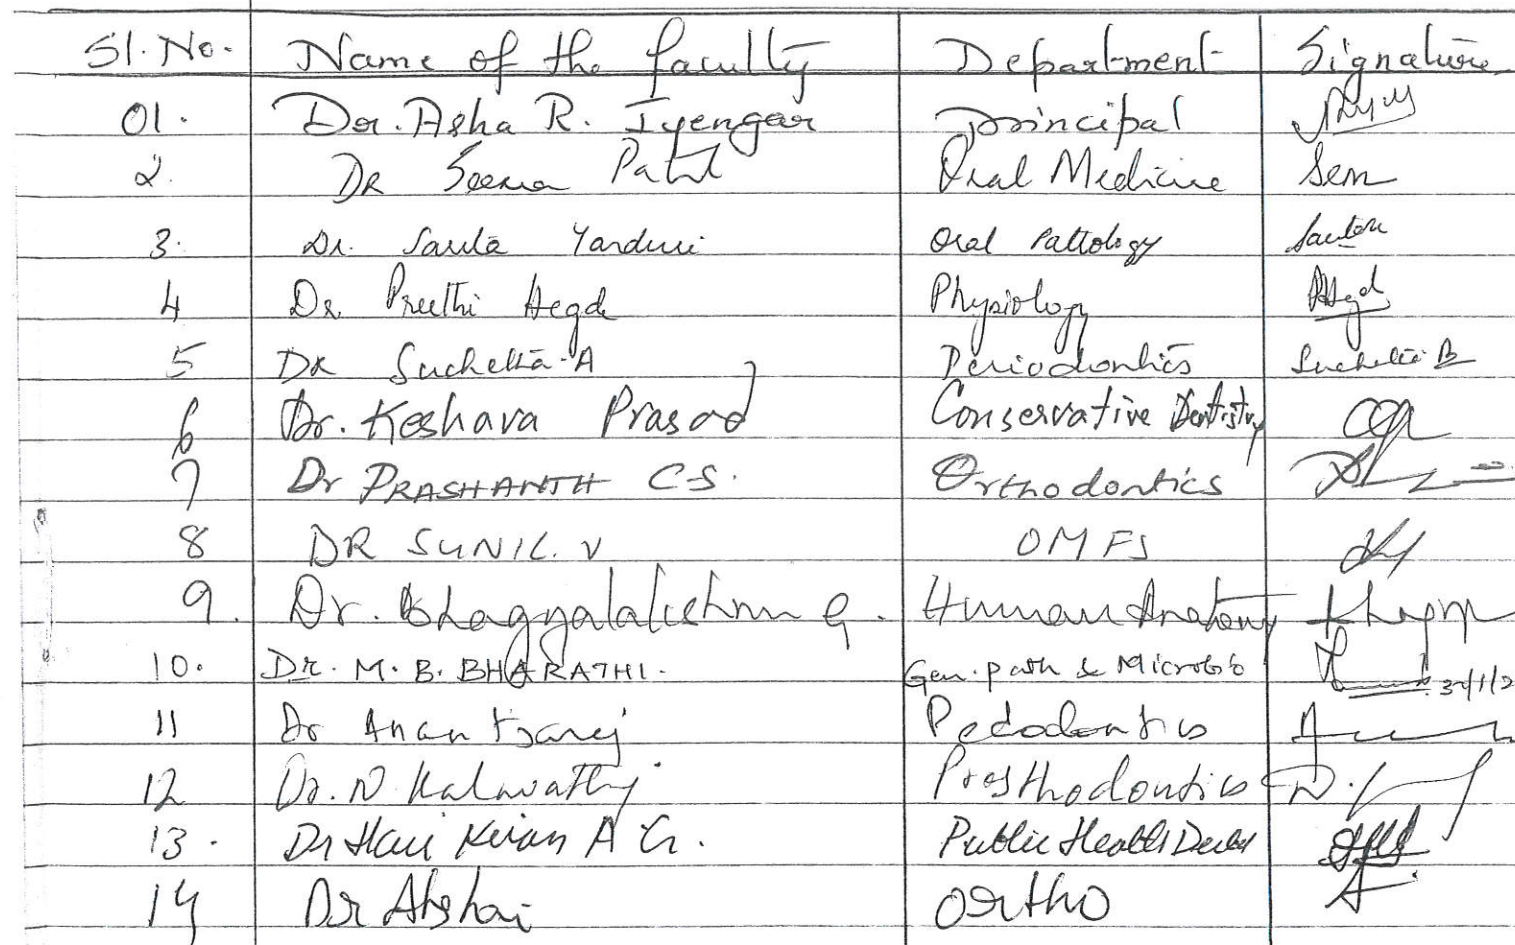 Sl. No. Name of the faculty Department Signature
01. Dr. Asha R. Iyengar Principal
2. DR Seema Patil Oral Medicine Sem
3. Dr. Sarita Yanduri Oral Pathology
4 Dr. Preethi Hegde Physiology Hegd
5 DR Suchetha. A Periodontics Suchetha
6 Dr. Keshava Prasad Conservative Dentistry
7 Dr PRASHANTH C.S. Orthodontics
8 DR SUNIL. V OMFS
9. Dr. Bhagyalakshmi G. Human Anatomy
10. Dr. M. B. BHARATHI. Gen. path & Microbio
11 Dr Anantharaj Pedodontics
12 Dr. N Kalavathy Prosthodontics
13. Dr Hari Kiran A G. Public Health
14 Dr Akshai Ortho